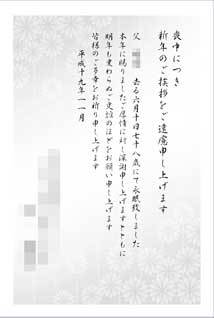 喪中につき
新年のご挨拶をご遠慮申し上げます
父
去る六月十日七十八歳にて永眠致しました
本年に賜りましたご厚情に対し深謝申し上げますとともに
明年も変わらぬご交誼のほどをお願い申し上げます
皆様のご多幸をお祈り申し上げます
平成十九年十一月